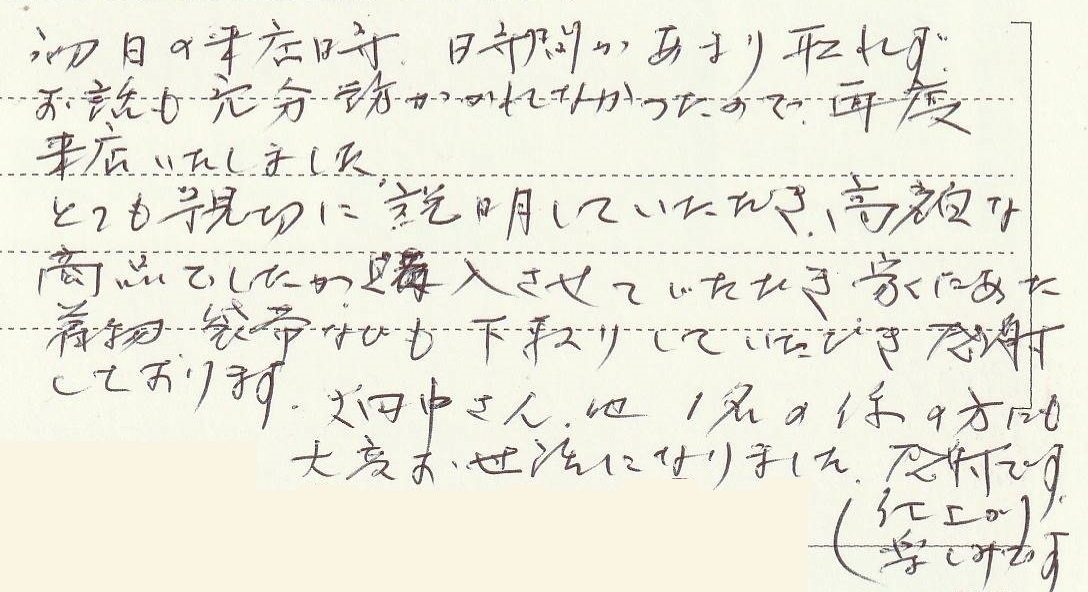 初日の来店時、時間があまり取れず、
お話も充分訪かかれてなかったので、再度
来店いたしました。
とても親切に説明していただき、高額な
商品でしたが購入させていただき家にあった
着物 袋帯なども下取りしていただき感謝
しております。 畑中さん、他1名の係の方にも
大変お世話になりました。感謝です。
(仕上が)
楽しみです